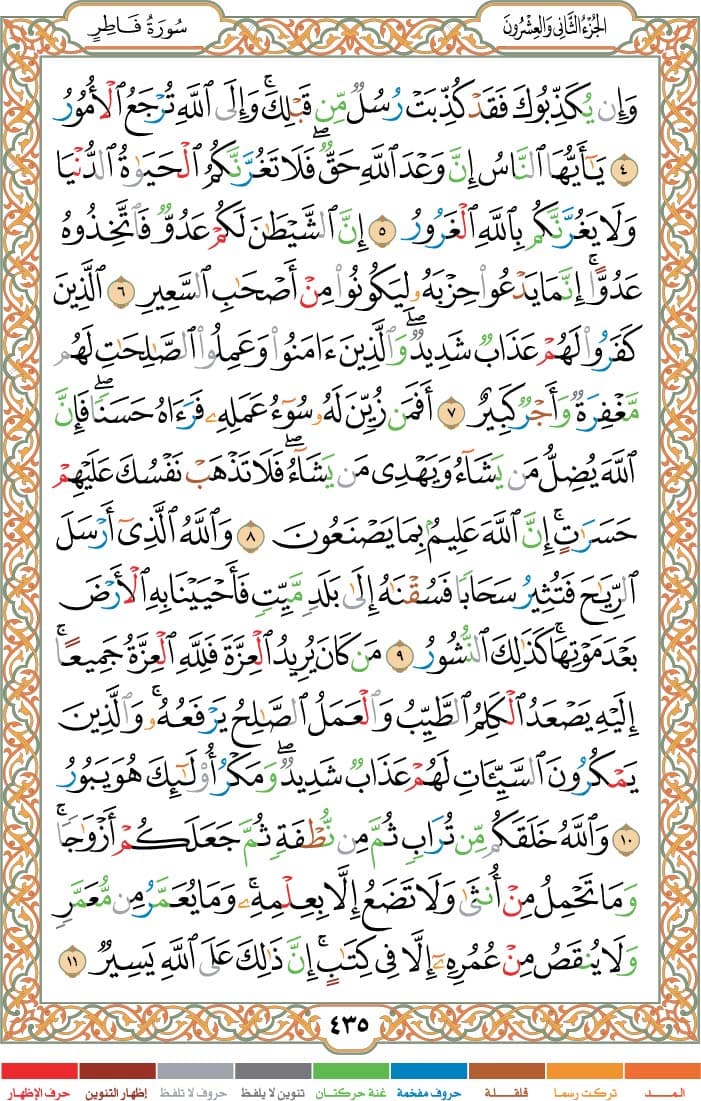 الجُزْءُ الثَّانِي وَالعِشْرُونَ
سُورَةُ فَاطِرٍ
وَإِن يُكَذِّبُوكَ فَقَدْ كُذِّبَتْ رُسُلٌ مِّن قَبْلِكَ ۚ وَإِلَى ٱللَّهِ تُرْجَعُ ٱلْأُمُورُ
٤ يَـٰٓأَيُّهَا ٱلنَّاسُ إِنَّ وَعْدَ ٱللَّهِ حَقٌّ ۖ فَلَا تَغُرَّنَّكُمُ ٱلْحَيَوٰةُ ٱلدُّنْيَا
وَلَا يَغُرَّنَّكُم بِٱللَّهِ ٱلْغَرُورُ ٥ إِنَّ ٱلشَّيْطَـٰنَ لَكُمْ عَدُوٌّ فَٱتَّخِذُوهُ
عَدُوًّا ۚ إِنَّمَا يَدْعُوا۟ حِزْبَهُۥ لِيَكُونُوا۟ مِنْ أَصْحَـٰبِ ٱلسَّعِيرِ ٦ ٱلَّذِينَ
كَفَرُوا۟ لَهُمْ عَذَابٌ شَدِيدٌ ۖ وَٱلَّذِينَ ءَامَنُوا۟ وَعَمِلُوا۟ ٱلصَّـٰلِحَـٰتِ لَهُم
مَّغْفِرَةٌ وَأَجْرٌ كَبِيرٌ ٧ أَفَمَن زُيِّنَ لَهُۥ سُوٓءُ عَمَلِهِۦ فَرَءَاهُ حَسَنًا ۖ فَإِنَّ
ٱللَّهَ يُضِلُّ مَن يَشَآءُ وَيَهْدِى مَن يَشَآءُ ۖ فَلَا تَذْهَبْ نَفْسُكَ عَلَيْهِمْ
حَسَرَٰتٍ ۚ إِنَّ ٱللَّهَ عَلِيمٌۢ بِمَا يَصْنَعُونَ ٨ وَٱللَّهُ ٱلَّذِىٓ أَرْسَلَ
ٱلرِّيَـٰحَ فَتُثِيرُ سَحَابًا فَسُقْنَـٰهُ إِلَىٰ بَلَدٍ مَّيِّتٍ فَأَحْيَيْنَا بِهِ ٱلْأَرْضَ
بَعْدَ مَوْتِهَا ۚ كَذَٰلِكَ ٱلنُّشُورُ ٩ مَن كَانَ يُرِيدُ ٱلْعِزَّةَ فَلِلَّهِ ٱلْعِزَّةُ جَمِيعًا ۚ
إِلَيْهِ يَصْعَدُ ٱلْكَلِمُ ٱلطَّيِّبُ وَٱلْعَمَلُ ٱلصَّـٰلِحُ يَرْفَعُهُۥ ۚ وَٱلَّذِينَ
يَمْكُرُونَ ٱلسَّيِّـَٔاتِ لَهُمْ عَذَابٌ شَدِيدٌ ۖ وَمَكْرُ أُو۟لَـٰٓئِكَ هُوَ يَبُورُ
١٠ وَٱللَّهُ خَلَقَكُم مِّن تُرَابٍ ثُمَّ مِن نُّطْفَةٍ ثُمَّ جَعَلَكُمْ أَزْوَٰجًا ۚ
وَمَا تَحْمِلُ مِنْ أُنثَىٰ وَلَا تَضَعُ إِلَّا بِعِلْمِهِۦ ۚ وَمَا يُعَمَّرُ مِن مُّعَمَّرٍ
وَلَا يُنقَصُ مِنْ عُمُرِهِۦٓ إِلَّا فِى كِتَـٰبٍ ۚ إِنَّ ذَٰلِكَ عَلَى ٱللَّهِ يَسِيرٌ ١١
٤٣٥
المــــد تركت رسما قلقـــلة حروف مفخمة غنة حركتان تنوين لا يلفظ حروف لا تلفظ إظهار التنوين حرف الإظهار